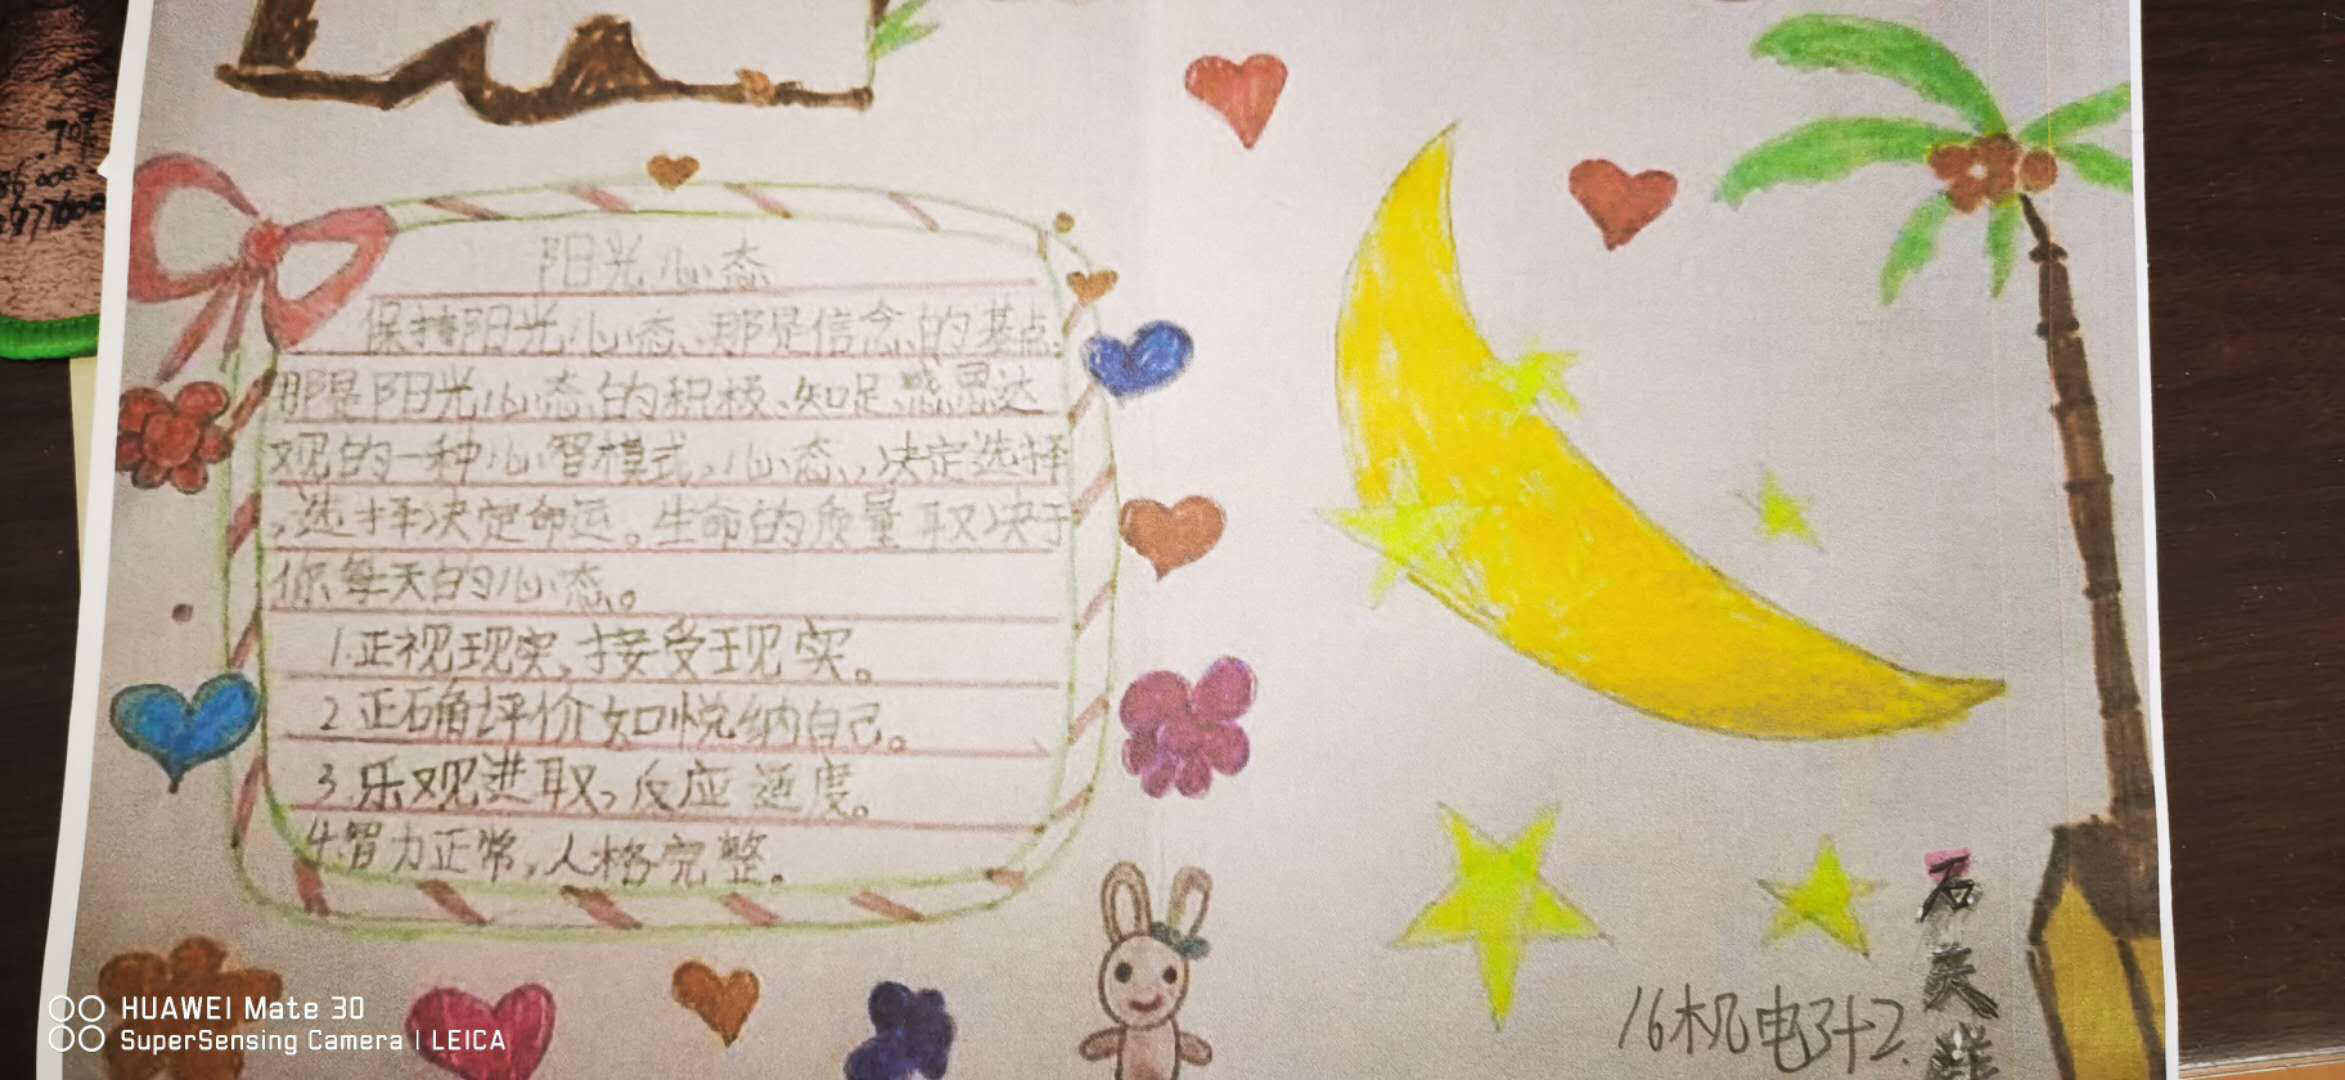 阳光心态
保持阳光心态、那是信念的基点、
那是阳光心态的积极、知足、感恩达
观的一种心智模式，心态、决定选择
，选择决定命运。生命的质量取决于
你每天的心态。
1.正视现实，接受现实。
2.正确评价如悦纳自己。
3.乐观进取，反应适度。
4.智力正常，人格完整。
16机电3+2.
石
美
HUAWEI Mate 30
SuperSensing Camera | LEICA